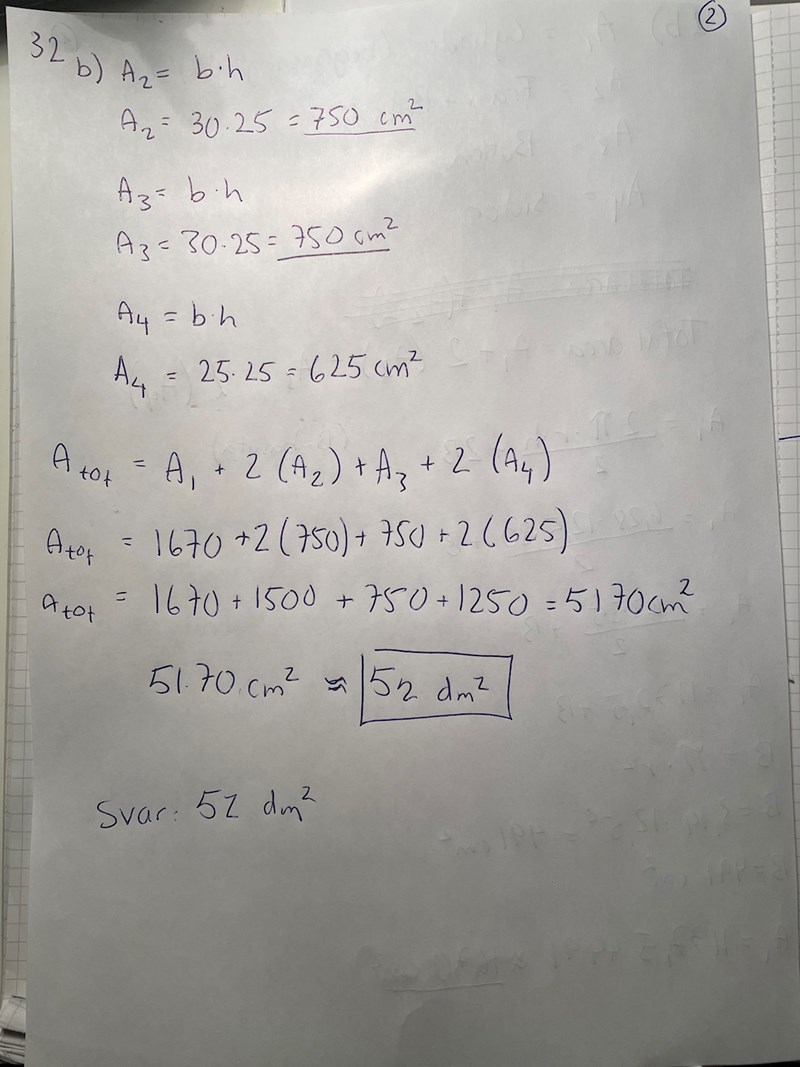 2
32 b) A₂ = b·h
A₂ = 30·25 = 750 cm²
A₃ = b·h
A₃ = 30·25 = 750 cm²
A₄ = b·h
A₄ = 25·25 = 625 cm²
A tot = A₁ + 2 (A₂) + A₃ + 2 (A₄)
A tot = 1670 + 2(750) + 750 + 2(625)
A tot = 1670 + 1500 + 750 + 1250 = 5170 cm²
51.70 cm² ≈ 52 dm²
Svar: 52 dm²